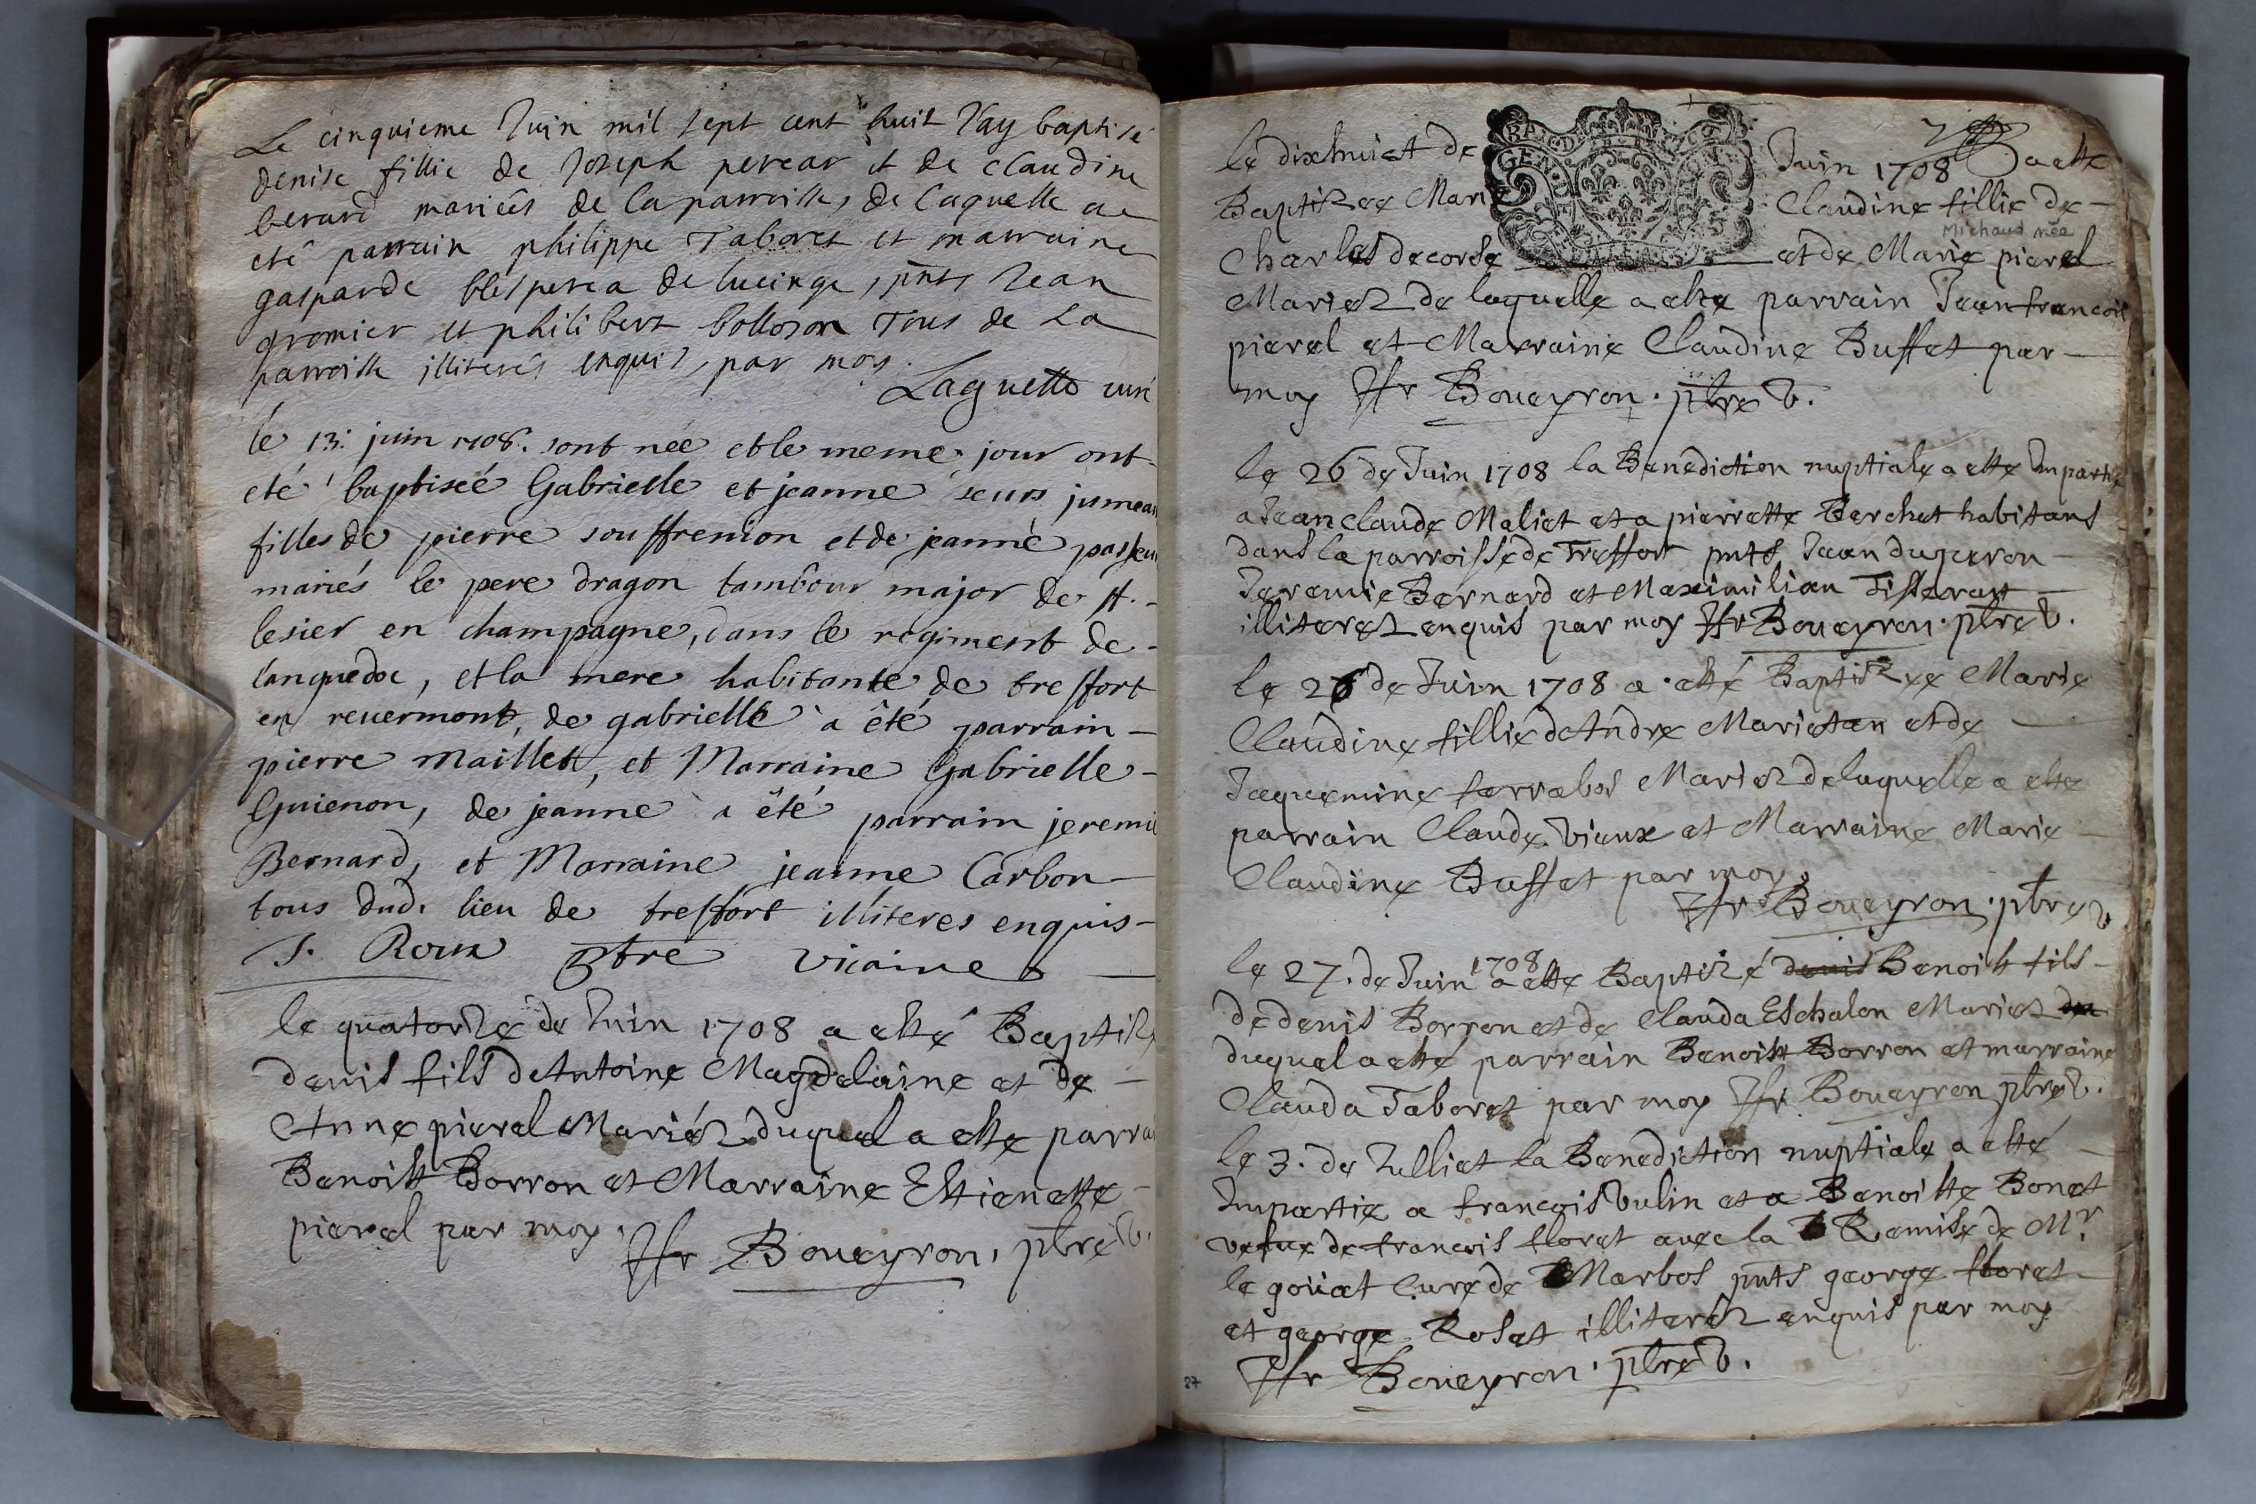 Le cinquieme Juin mil sept cent huit J'ay baptisé
denise fillie de Joseph perear et de claudine
berard mariés de la parroisse, de laquelle a
eté parrain philippe Taboret et marraine
gasparde blesperea de lucinge, pnts Jean
gromier et philibert bolloson Tous de La
parroisse illiterés enquis, par moy.
Laguette curé
le 13: juin 1708. sont née et le meme jour ont
eté baptiseé Gabrielle et jeanne seurs jumeau
filles de pierre souffrenion et de jeanne passeu
mariés le pere dragon tambour major de st.
lesier en champagne, dans le regiment de
languedoc, et la mere habitante de treffort
en reuermont, de gabrielle a été parrain
pierre maillet, et Marraine Gabrielle
Guienon, de jeanne a été parrain jeremie
Bernard, et Marraine jeanne Carbon
tous dud. lieu de treffort illiteres enquis
J. Roux ptre vicaire
le quatorze de Juin 1708 a esté Baptizé
denis fils d'Antoine Magdelaine et de
Anne pierel Mariéz duquel a este parra
Benoist Borron et Marraine Estienette
pierel par moy.
Jfr Boueyron. ptre v.
le dixhuict de Juin 1708 a este
Baptizee Marie Claudine fillie de
Michaud née
Charles decorse et de Marie pierel
Mariez de laquelle a este parrain Jean francois
pierel et Marraine Claudine Buffet par
moy Jfr Boueyron. ptre v.
le 26 de Juin 1708 la Benediction nuptiale a este Impartie
a Jean claude Maliet et a pierrette Berchet habitans
dans la parroisse de Treffort pnts Jean duperon
Jeremie Bernard et Maximilian Tisserant
illiterez enquis par moy Jfr Boueyron. ptre v.
le 26 de Juin 1708 a esté Baptizee Marie
Claudine fillie d'Andre Marietan et de
Jaquemine farrabos Mariez de laquelle a este
parrain Claude vieux et Marraine Marie
Claudine Buffet par moy.
Jfr Boueyron. ptre v.
le 27. de Juin 1708 a este Baptizé denis Benoist fils
de denis Borron et de Clauda Eschalon Mariez de
duquel a este parrain Benoist Borron et marraine
Clauda Taboret par moy Jfr. Boueyron ptre v.
le 3. de Julliet la Benediction nuptiale a esté
Impartie a francois Vulin et a Benoiste Bonet
vefue de francois floret auec la Remise de Mr.
le goüat Curé de Marbos pnts george floret
et george Roset illiteréz enquis par moy
Jfr Boueyron. ptre v.
87